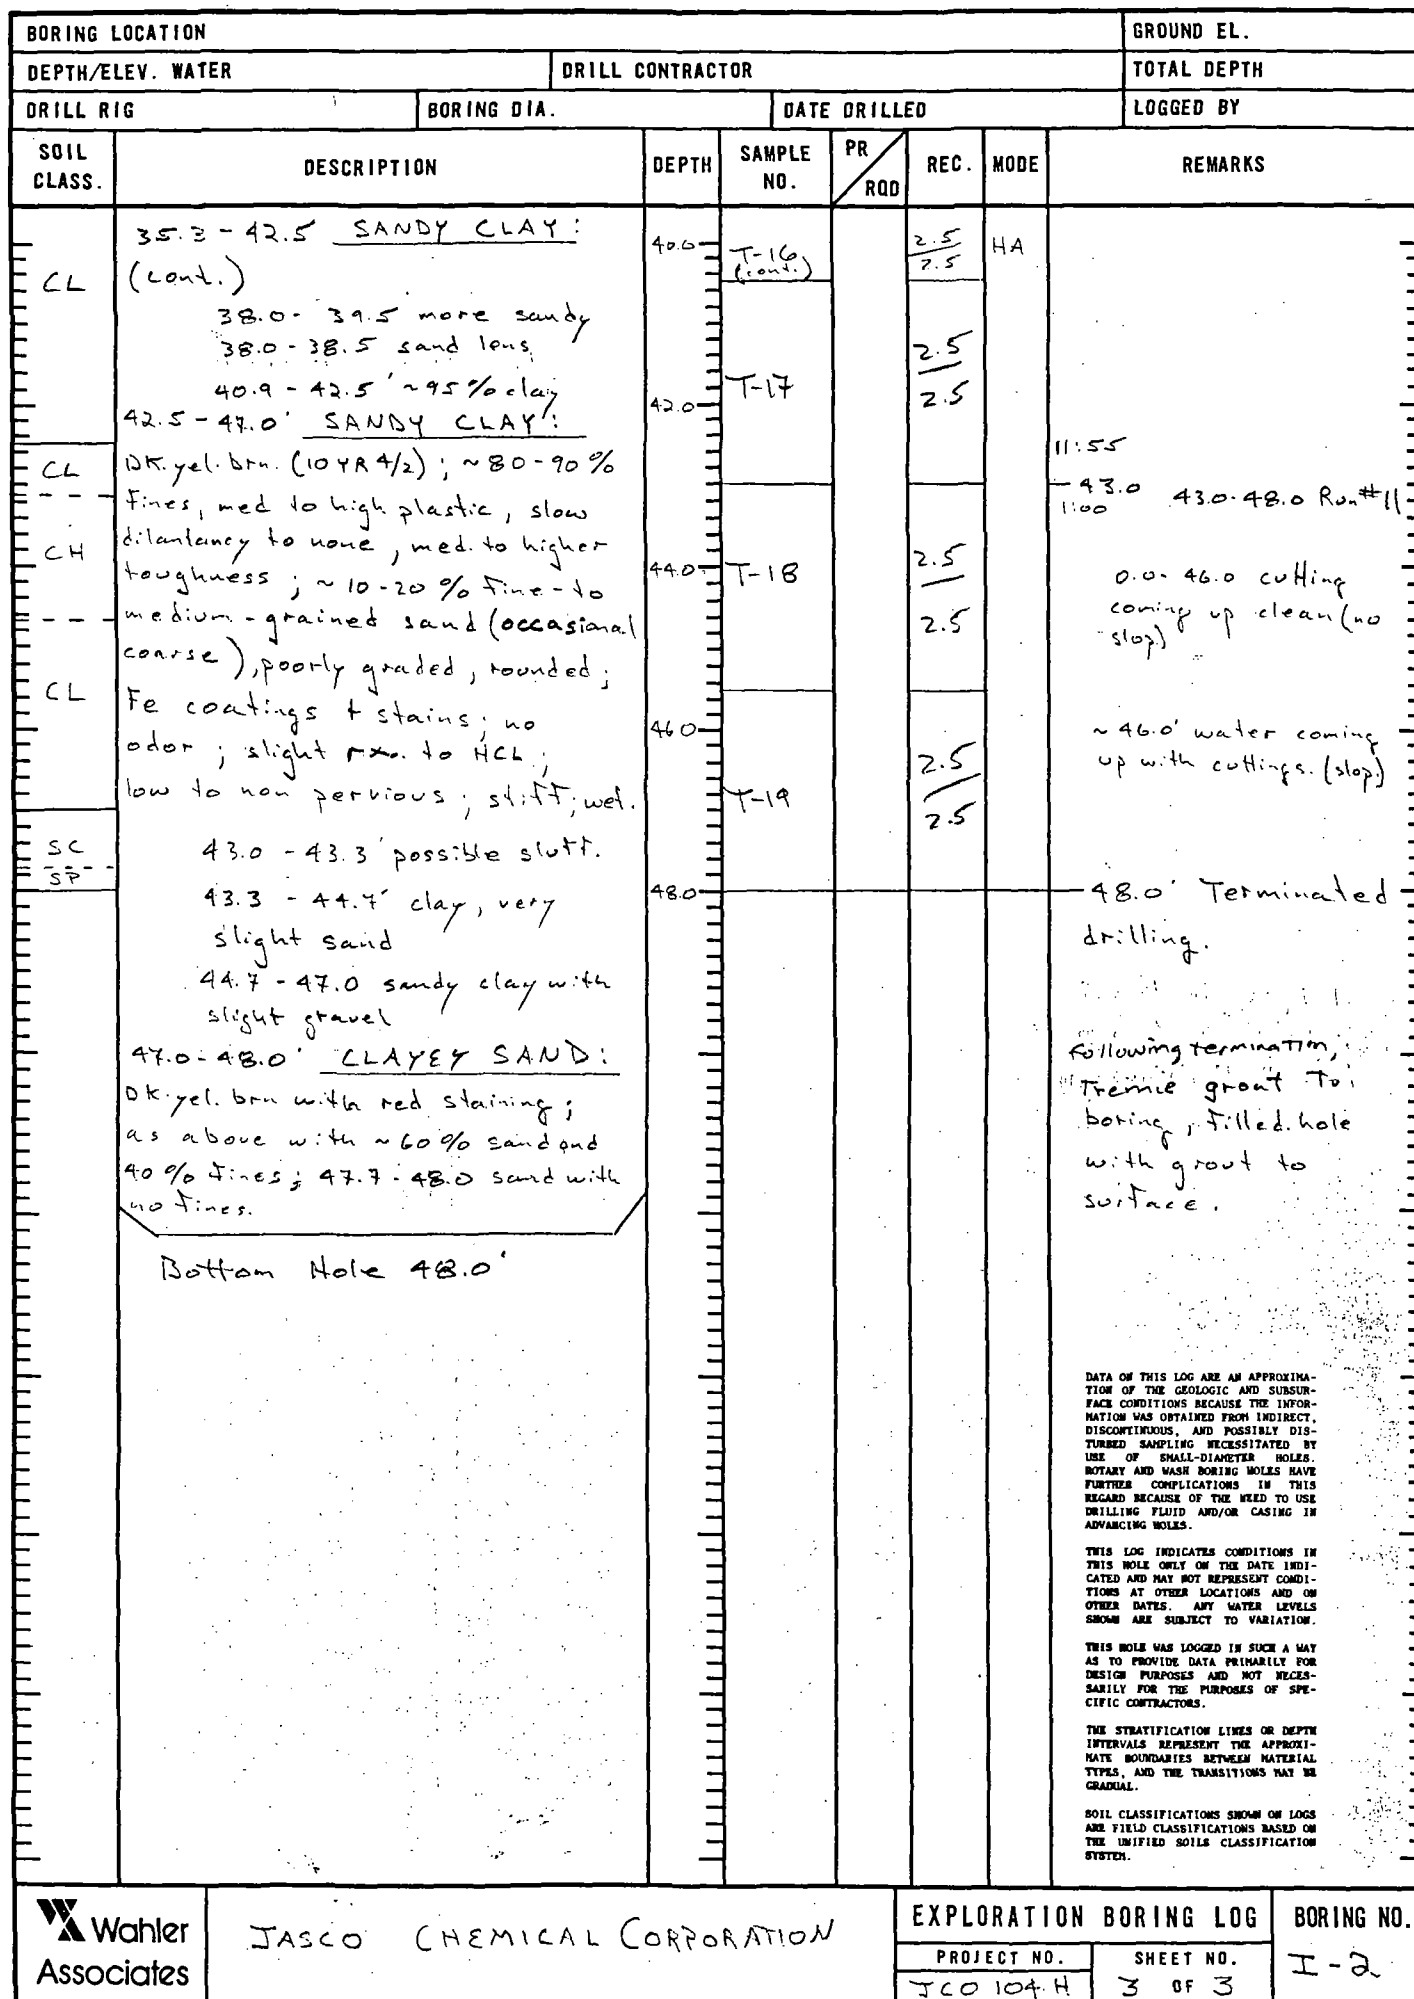 BORING LOCATION
GROUND EL.
DEPTH/ELEV. WATER
DRILL CONTRACTOR
TOTAL DEPTH
DRILL RIG
BORING DIA.
DATE DRILLED
LOGGED BY
SOIL CLASS.
DESCRIPTION
DEPTH
SAMPLE NO.
PR / RQD
REC.
MODE
REMARKS
CL
CL
CH
CL
SC
SP
35.3 - 42.5 SANDY CLAY:
(cont.)
38.0 - 39.5 more sandy
38.0 - 38.5 sand lens
40.9 - 42.5' ~95% clay
42.5 - 47.0' SANDY CLAY:
DK. yel. brn. (10YR 4/2); ~80-90%
fines, med to high plastic, slow
dilantancy to none, med. to higher
toughness; ~10-20% fine-to
medium-grained sand (occasional
coarse), poorly graded, rounded;
Fe coatings + stains; no
odor; slight rxn. to HCL;
low to non pervious; stiff; wet.
43.0 - 43.3' possible sluff.
43.3 - 44.7' clay, very
slight sand
44.7 - 47.0 sandy clay with
slight gravel
47.0 - 48.0' CLAYEY SAND:
DK. yel. brn with red staining;
as above with ~60% sand and
40% fines; 47.7 - 48.0 sand with
no fines.
Bottom Hole 48.0'
40.0
42.0
44.0
46.0
48.0
T-16
(cont.)
T-17
T-18
T-19
2.5
2.5
2.5
2.5
2.5
2.5
2.5
2.5
HA
11:55
43.0
1:00
43.0-48.0 Run #11
0.0 - 46.0 cutting
coming up clean (no
slop)
~46.0' water coming
up with cuttings. (slop)
48.0' Terminated
drilling.
Following termination,
Tremie grout To
boring, filled hole
with grout to
surface.
DATA ON THIS LOG ARE AN APPROXIMA-
TION OF THE GEOLOGIC AND SUBSUR-
FACE CONDITIONS BECAUSE THE INFOR-
MATION WAS OBTAINED FROM INDIRECT,
DISCONTINUOUS, AND POSSIBLY DIS-
TURBED SAMPLING NECESSITATED BY
USE OF SMALL-DIAMETER HOLES.
ROTARY AND WASH BORING HOLES HAVE
FURTHER COMPLICATIONS IN THIS
REGARD BECAUSE OF THE NEED TO USE
DRILLING FLUID AND/OR CASING IN
ADVANCING HOLES.
THIS LOG INDICATES CONDITIONS IN
THIS HOLE ONLY ON THE DATE INDI-
CATED AND MAY NOT REPRESENT CONDI-
TIONS AT OTHER LOCATIONS AND ON
OTHER DATES. ANY WATER LEVELS
SHOWN ARE SUBJECT TO VARIATION.
THIS HOLE WAS LOGGED IN SUCH A WAY
AS TO PROVIDE DATA PRIMARILY FOR
DESIGN PURPOSES AND NOT NECES-
SARILY FOR THE PURPOSES OF SPE-
CIFIC CONTRACTORS.
THE STRATIFICATION LINES OR DEPTH
INTERVALS REPRESENT THE APPROXI-
MATE BOUNDARIES BETWEEN MATERIAL
TYPES, AND THE TRANSITIONS MAY BE
GRADUAL.
SOIL CLASSIFICATIONS SHOWN ON LOGS
ARE FIELD CLASSIFICATIONS BASED ON
THE UNIFIED SOILS CLASSIFICATION
SYSTEM.
Wahler
Associates
JASCO CHEMICAL CORPORATION
EXPLORATION BORING LOG
PROJECT NO.
JCO 104 H
SHEET NO.
3 OF 3
BORING NO.
I-2